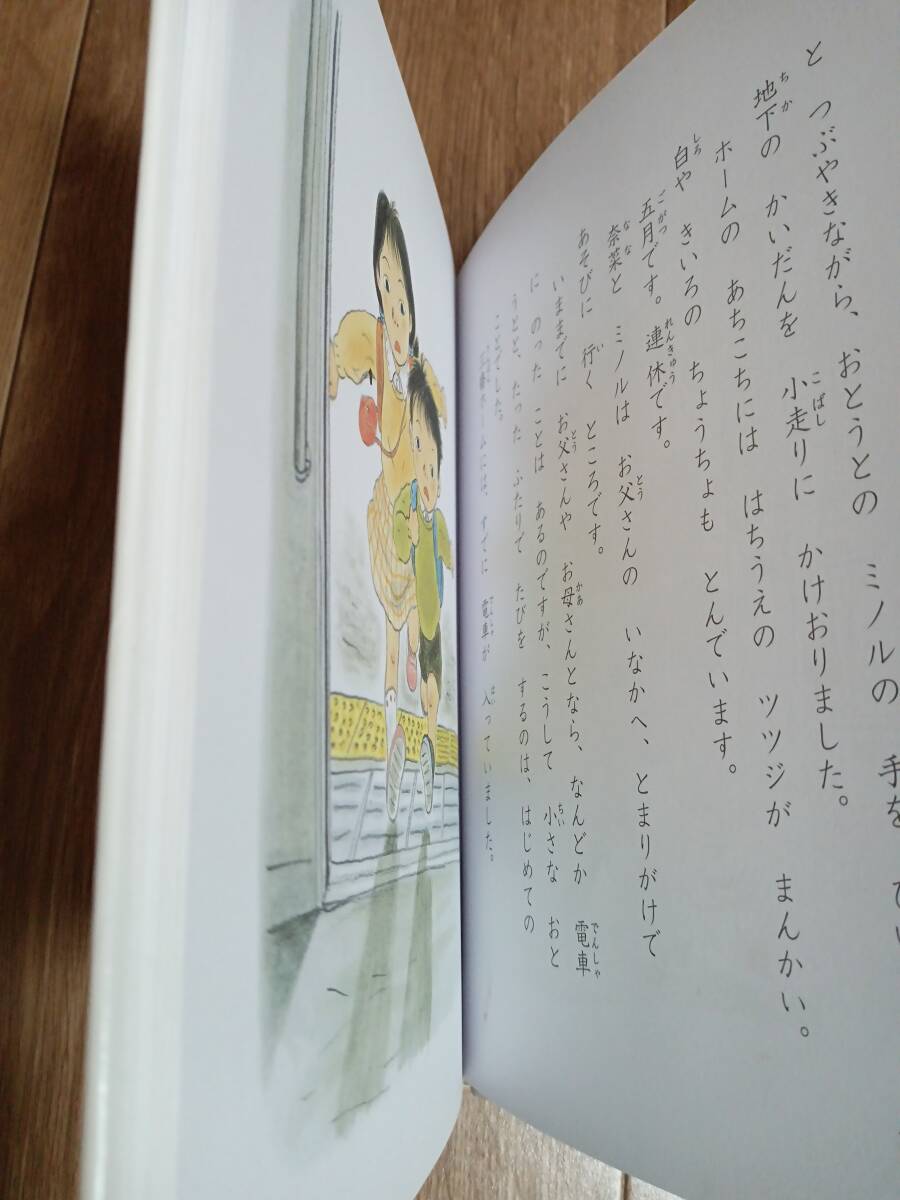 と つぶやきながら、おとうとの ミノルの 手を
地下の かいだんを 小走りに かけおりました。
ホームの あちこちには はちうえの ツツジが まんかい。
白や きいろの ちょうちょも とんでいます。
五月です。連休です。
奈菜と ミノルは お父さんの いなかへ、とまりがけで
あそびに 行く ところです。
いままでに お父さんや お母さんとなら、なんどか 電車
に のった ことは あるのですが、こうして 小さな おと
うとと、たった ふたりで たびを するのは、はじめての
ことでした。
ホームには、すでに 電車が 入っていました。